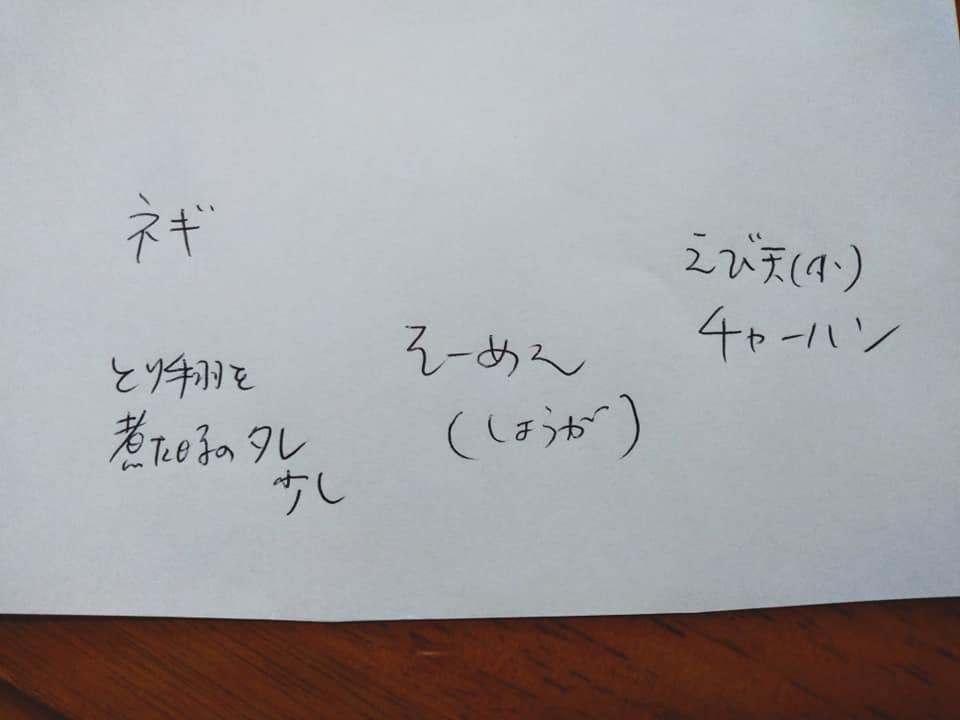 ネギ
とり手羽を
煮た時のタレ
少し
そーめん
(しょうが)
えび天(小)
チャーハン